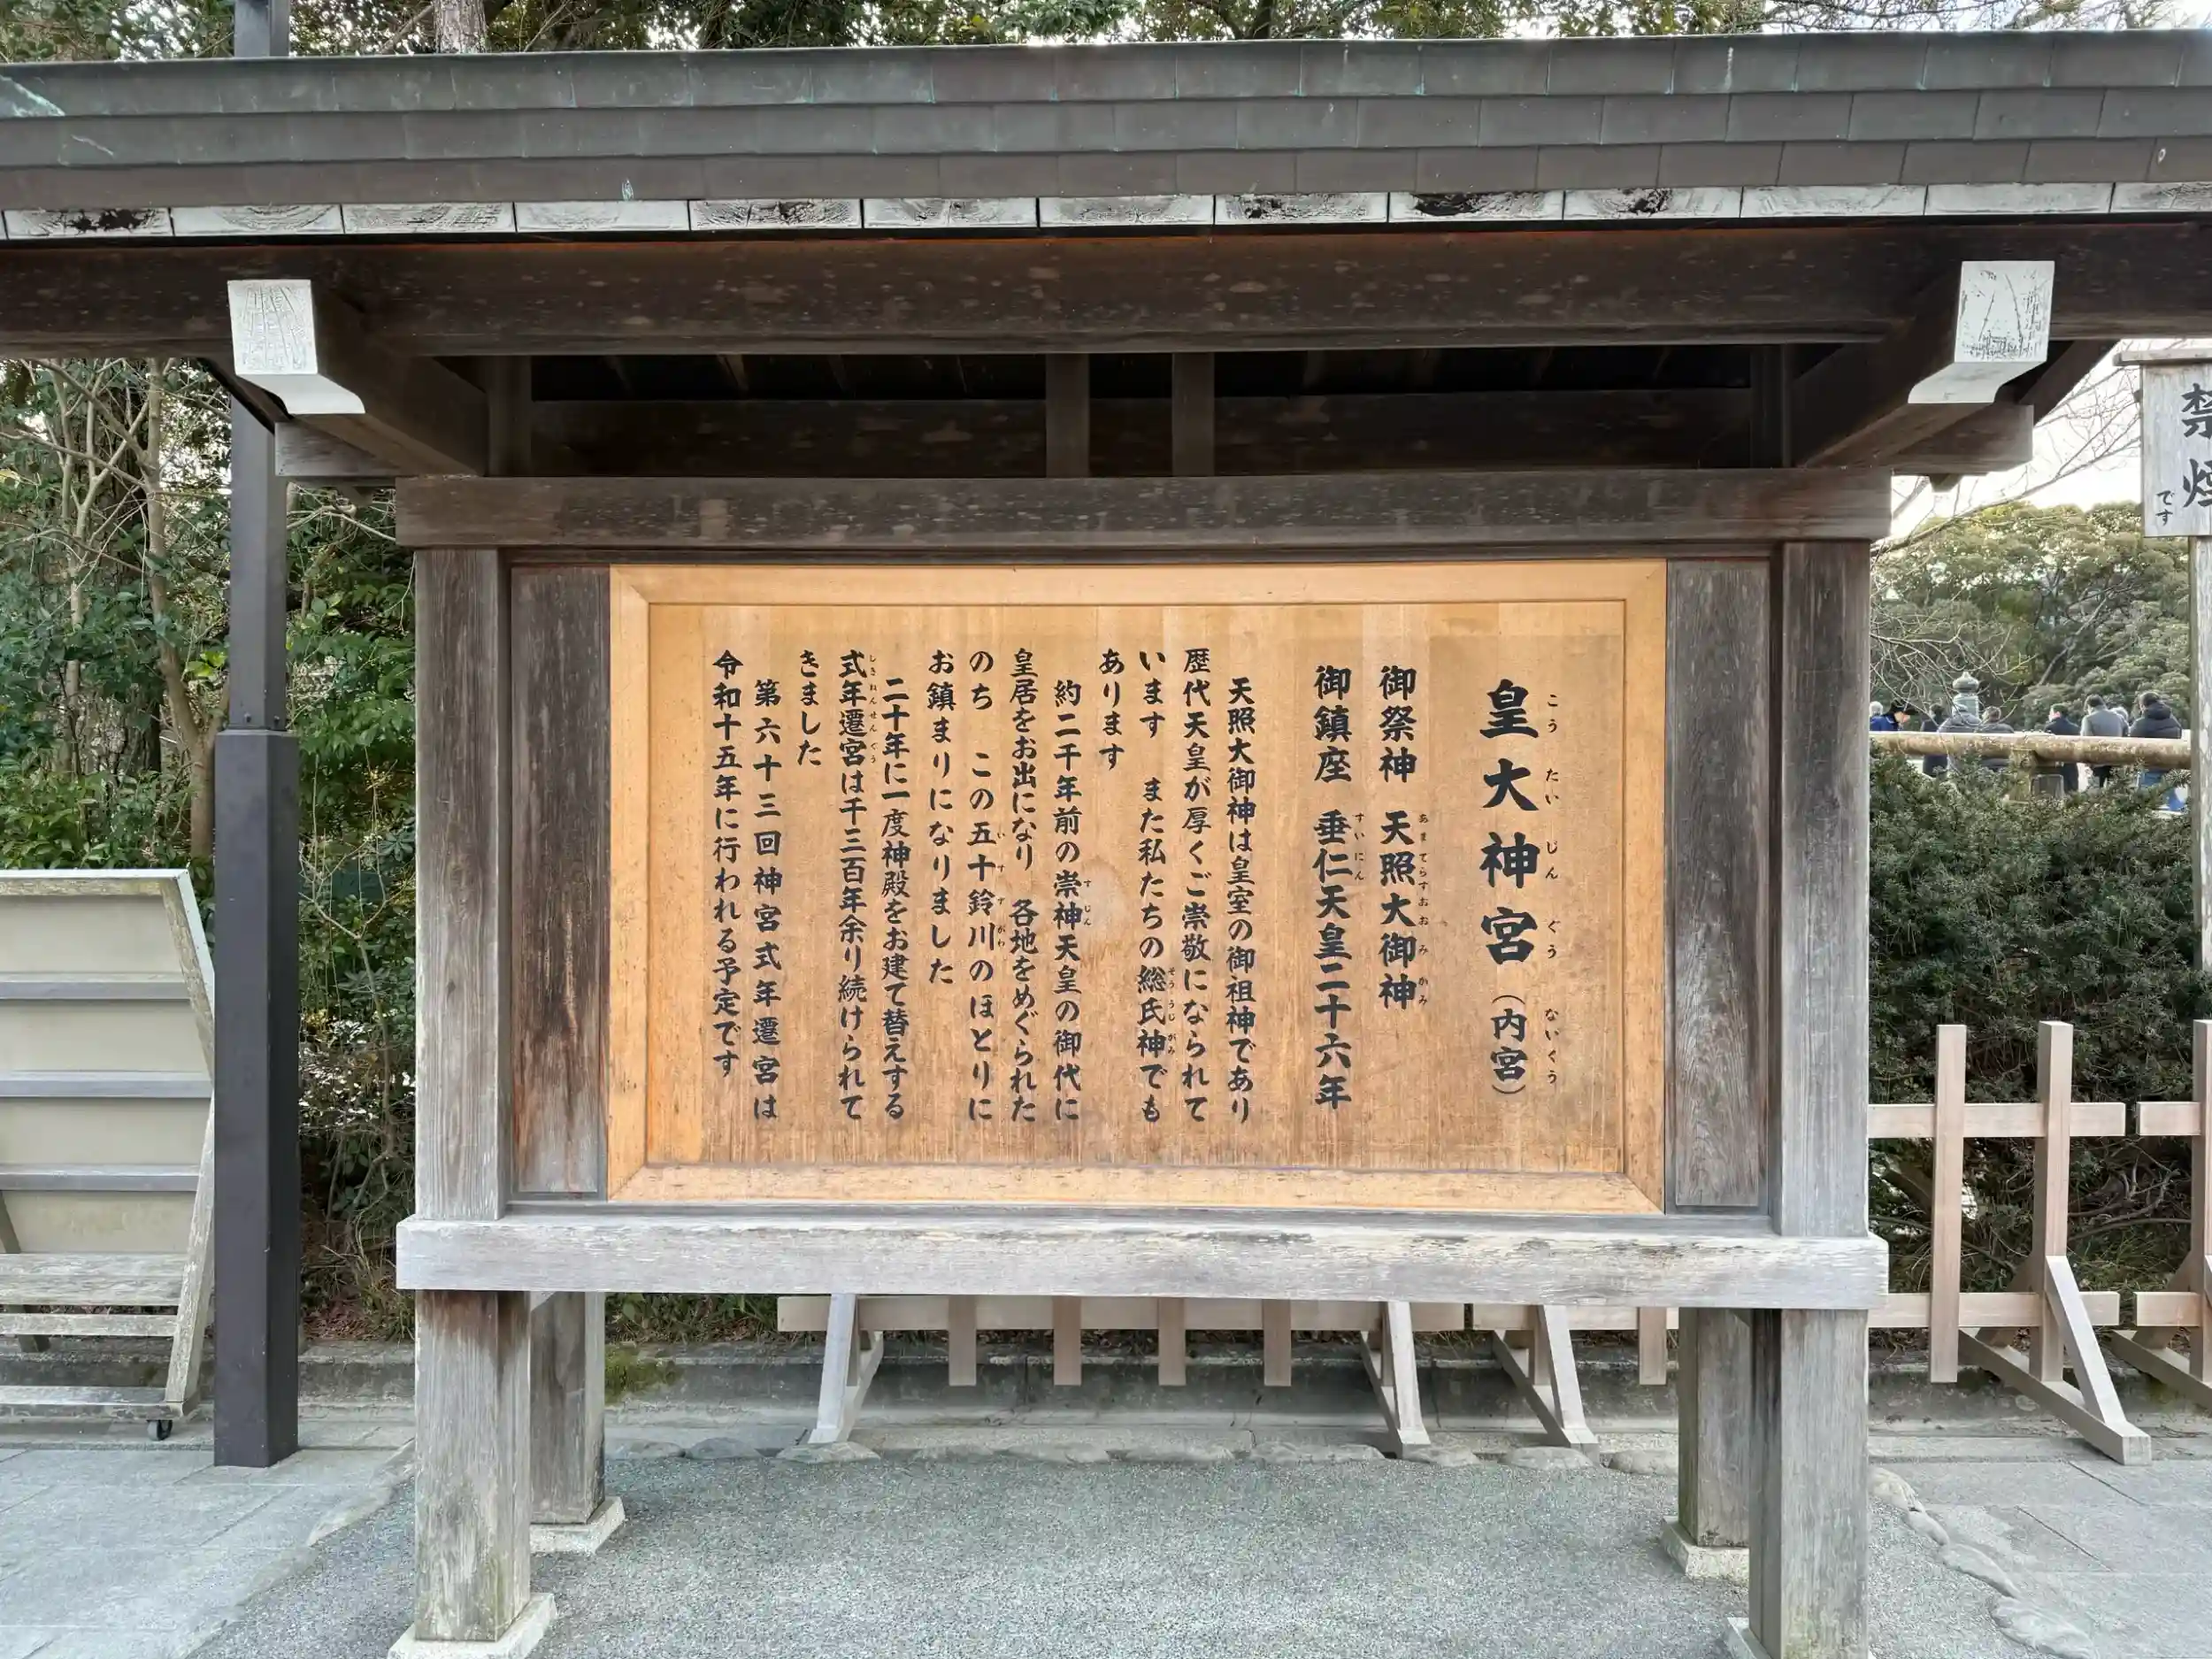 皇大神宮（内宮）
こう たい じん ぐう ないくう
御祭神 天照大御神
あまてらすおおみかみ
御鎮座 垂仁天皇二十六年
すいにん
天照大御神は皇室の御祖神であり
歴代天皇が厚くご崇敬になられて
います また私たちの総氏神でも
そううじがみ
あります
約二千年前の崇神天皇の御代に
すじん
皇居をお出になり 各地をめぐられた
のち この五十鈴川のほとりに
いすずがわ
お鎮まりになりました
二十年に一度神殿をお建て替えする
式年遷宮は千三百年余り続けられて
しきねんせんぐう
きました
第六十三回神宮式年遷宮は
令和十五年に行われる予定です
禁煙
です